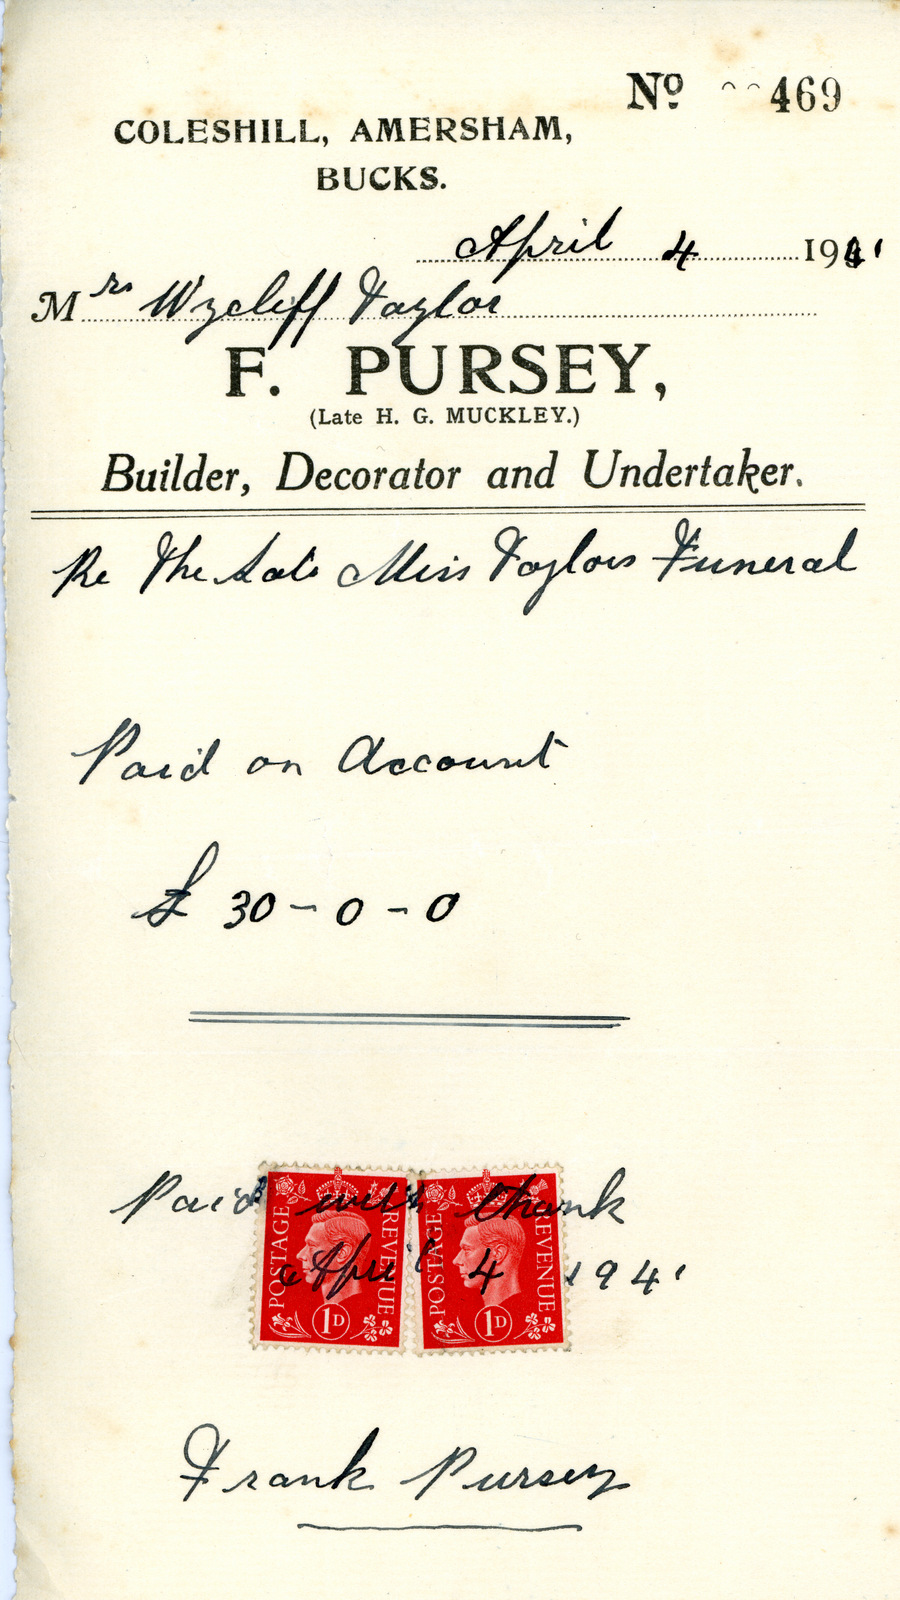 Nº 469
COLESHILL, AMERSHAM,
BUCKS.
April 4 1941
Mrs Wycliff Taylor
F. PURSEY,
(Late H. G. MUCKLEY.)
Builder, Decorator and Undertaker.
Re The Late Miss Taylors Funeral
Paid on Account
£ 30-0-0
Paid with thank
April 4 1941
POSTAGE REVENUE 1D
POSTAGE REVENUE 1D
Frank Pursey